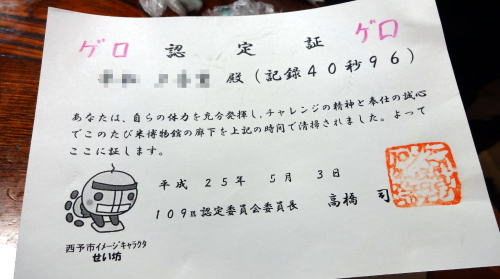 ゲロ 認定証 ゲロ
殿(記録40秒96)
あなたは、自らの体力を充分発揮し、チャレンジの精神と奉仕の誠心
でこのたび米博物館の廊下を上記の時間で清掃されました。よって
ここに証します。
平成 25年 5月 3日
109m認定委員会委員長 高橋 司
西予市イメージキャラクタ
せい坊